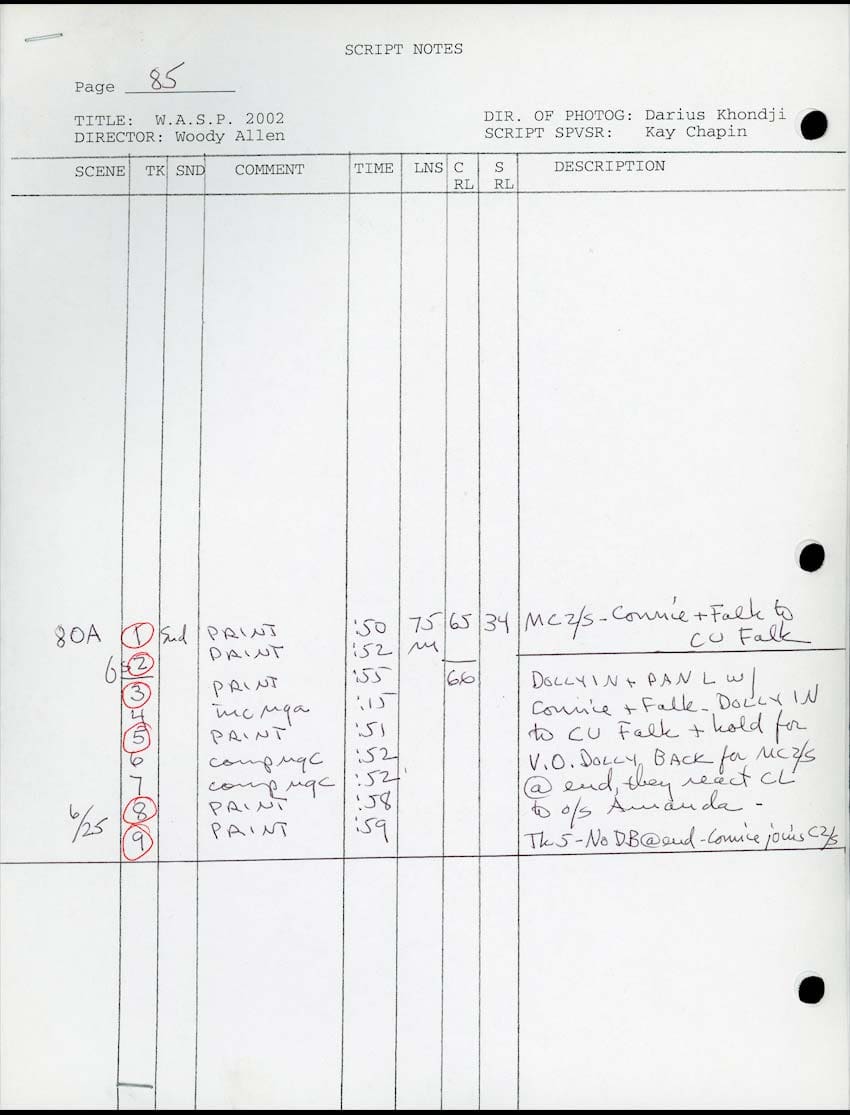 SCRIPT NOTES
Page 85
TITLE: W.A.S.P. 2002
DIR. OF PHOTOG: Darius Khondji
DIRECTOR: Woody Allen
SCRIPT SPVSR: Kay Chapin
SCENE TK SND COMMENT TIME LNS C RL S RL DESCRIPTION
80A 1 Snd PRINT :50 75 65 34 MC2/S - Connie + Falk to
CU Falk
2 PRINT :52
3 PRINT :55 66 DOLLY IN + PAN L W/
4 inc nga :15 Connie + Falk - DOLLY IN
5 PRINT :51 to CU Falk + hold for
6 comp ngc :52 V.O. DOLLY BACK for MC2/S
7 comp ngc :52 @ end, they react CL
6/25 8 PRINT :58 to o/s Amanda -
9 PRINT :59 Tk 5 - No DB @ end - Connie joins C2/S